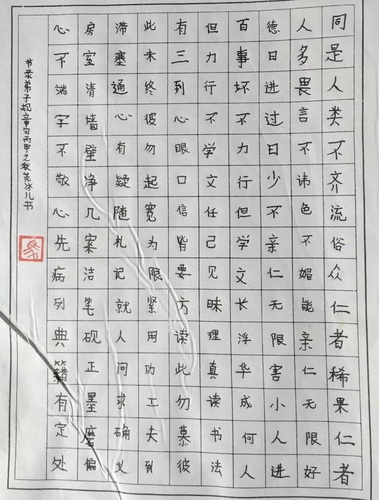 同是人类不齐流俗众仁者稀果仁者
人多畏言不讳色不媚能亲仁无限好
德日进过日少不亲仁无限害小人进
百事坏不力行但学文长浮华成何人
但力行不学文任己见昧理真读书法
有三到心眼口信皆要方读此勿慕彼
此未终彼勿起宽为限紧用功工夫到
滞塞通心有疑随札记就人问求确义
房室清墙壁净几案洁笔砚正墨磨偏
心不端字不敬心先病列典籍有定处
书录弟子规章句丙申之秋英冰儿书